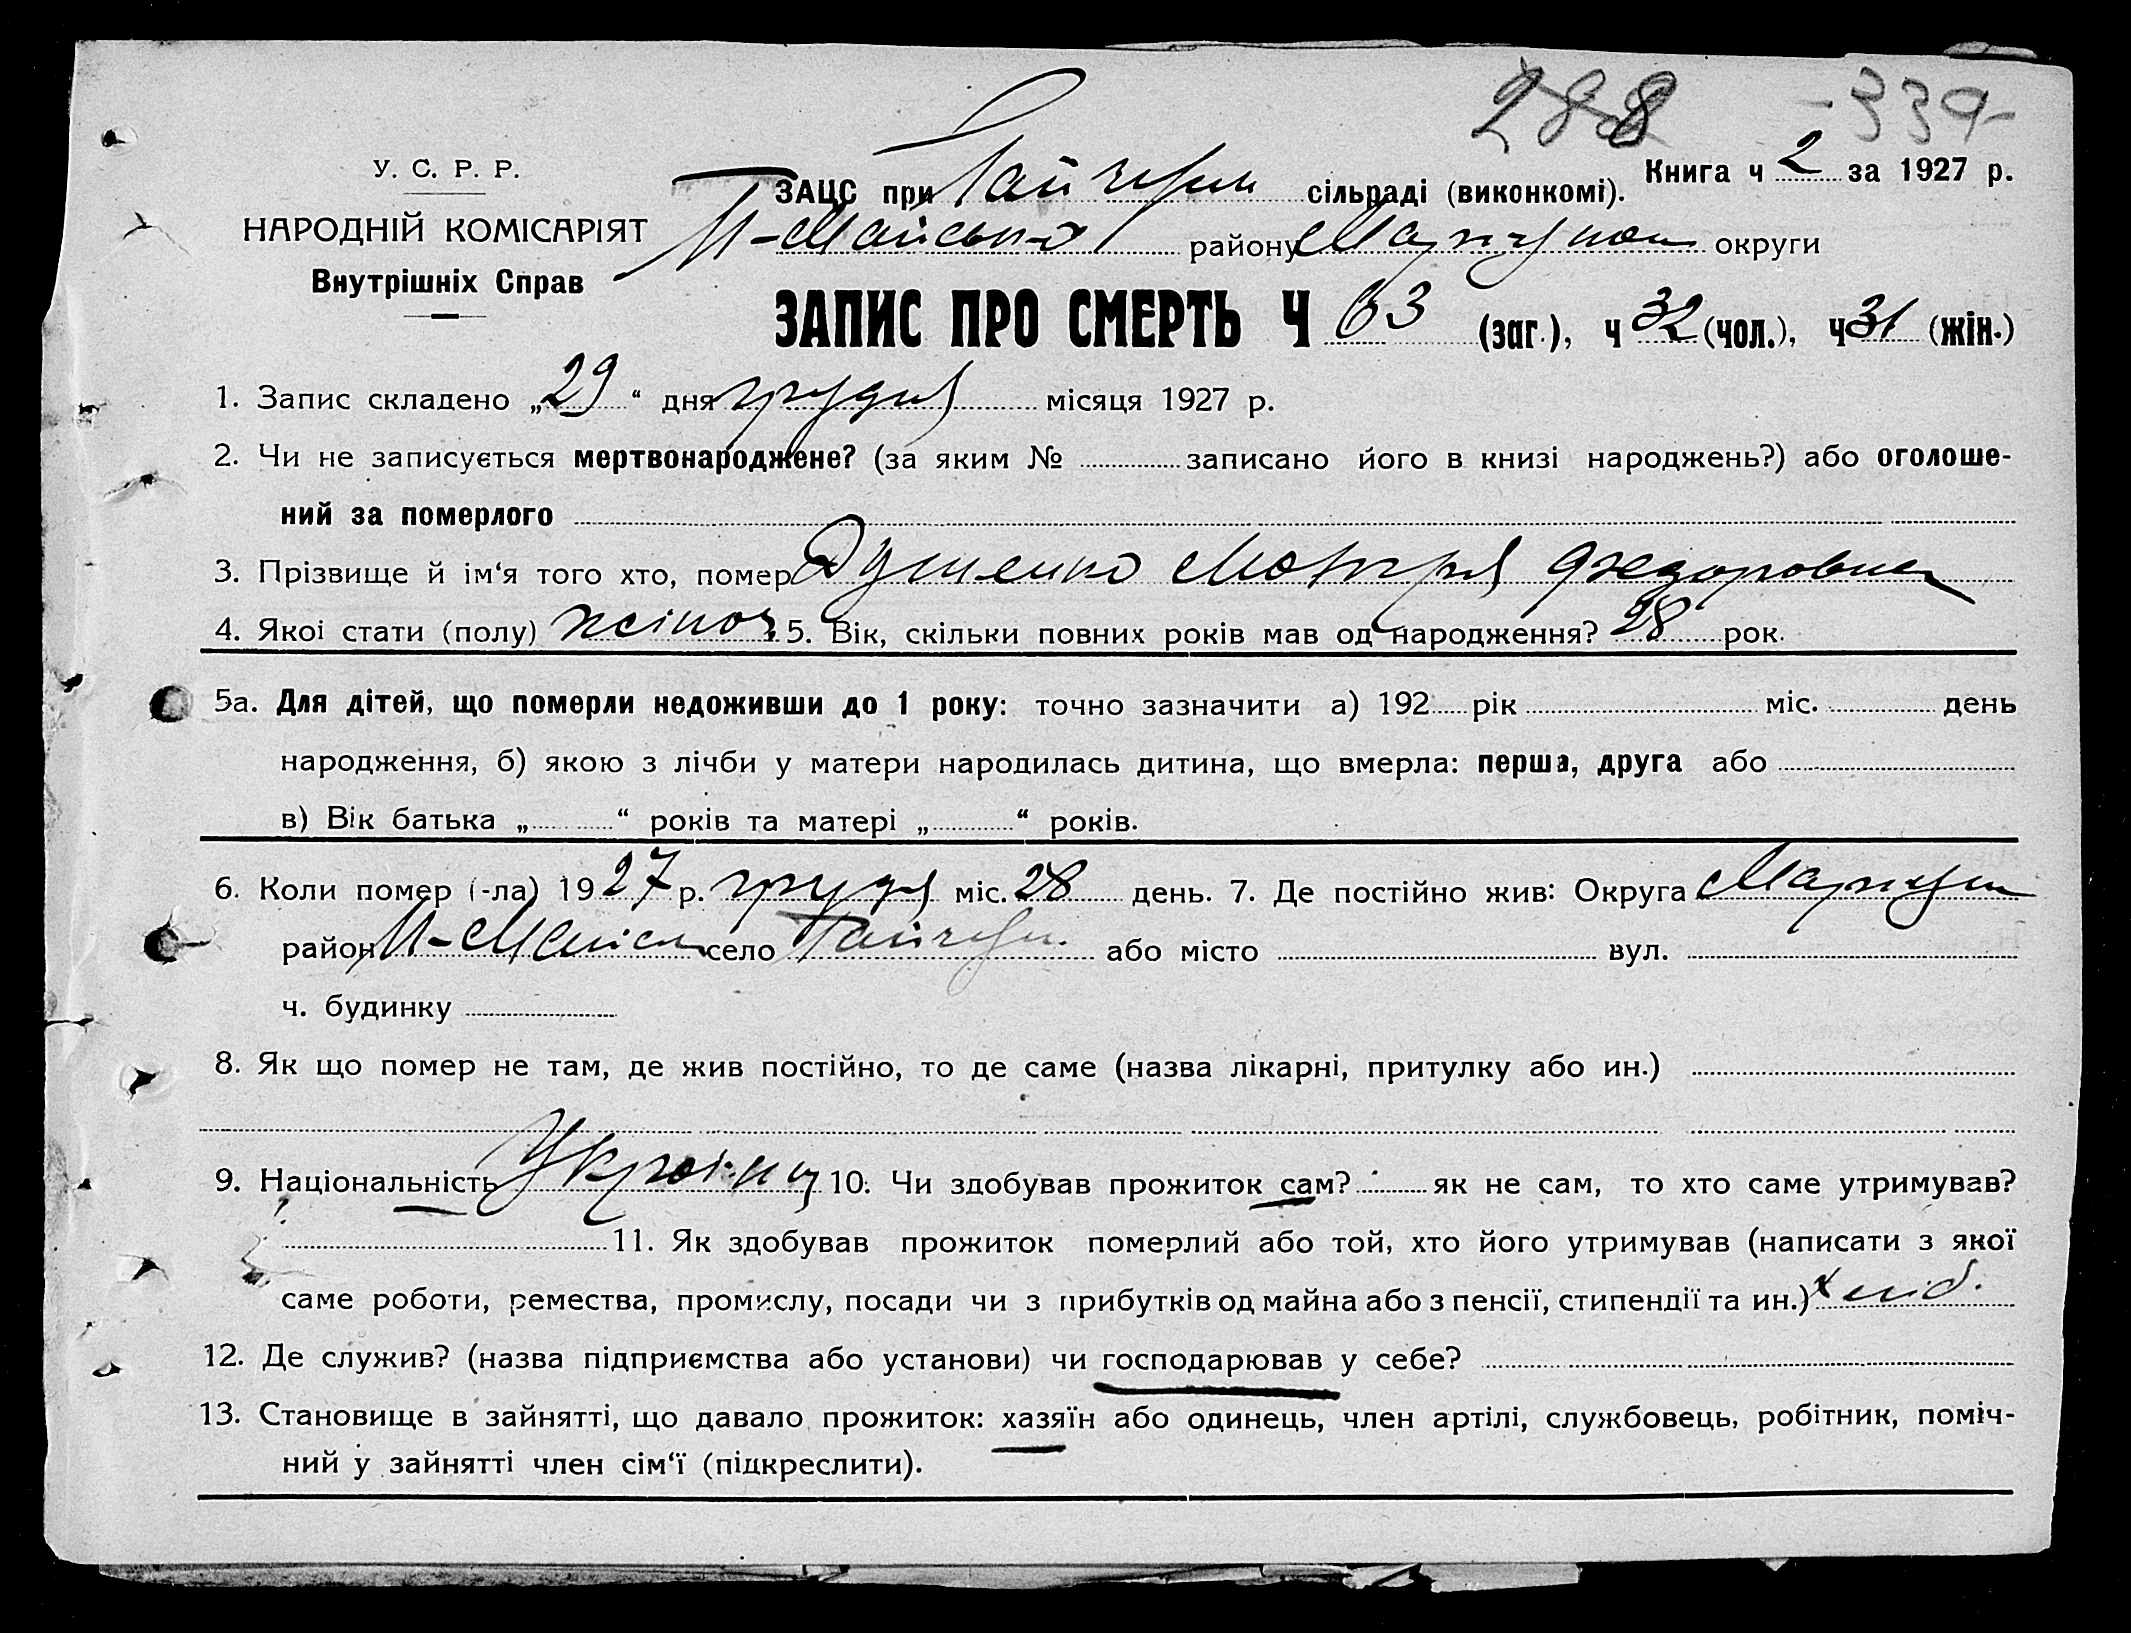 288 -339-
У. С. Р. Р.
НАРОДНІЙ КОМІСАРІЯТ
Внутрішніх Справ
Книга ч 2 за 1927 р.
ЗАЦС при Гайчурск сільраді (виконкомі).
П-Майського району Маріупол округи
ЗАПИС ПРО СМЕРТЬ Ч 63 (заг.), ч 32 (чол.), ч 31 (жін.)
1. Запис складено „29“ дня грудня місяця 1927 р.
2. Чи не записується мертвонароджене? (за яким № записано його в книзі народжень?) або оголоше-
ний за померлого
3. Прізвище й ім‘я того хто, помер Душенко Мотря Федоровна
4. Якоі стати (полу) жіноч. 5. Вік, скільки повних років мав од народження? 28 рок.
5а. Для дітей, що померли недоживши до 1 року: точно зазначити а) 192 рік міс. день
народження, б) якою з лічби у матери народилась дитина, що вмерла: перша, друга або
в) Вік батька „ “ років та матері „ “ років.
6. Коли помер (-ла) 1927 р. грудня міс. 28 день. 7. Де постійно жив: Округа Маріуп
район П-Майськ село Гайчур. або місто вул.
ч. будинку
8. Як що помер не там, де жив постійно, то де саме (назва лікарні, притулку або ин.)
9. Національність Україн 10. Чи здобував прожиток сам? як не сам, то хто саме утримував?
11. Як здобував прожиток померлий або той, хто його утримував (написати з якої
саме роботи, ремества, промислу, посади чи з прибутків од майна або з пенсії, стипендії та ин.) хліб.
12. Де служив? (назва підприємства або установи) чи господарював у себе?
13. Становище в зайнятті, що давало прожиток: хазяїн або одинець, член артілі, службовець, робітник, поміч-
ний у зайнятті член сім‘ї (підкреслити).